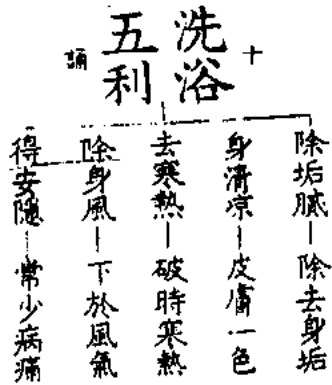 十
洗浴
五利
誦
除垢膩—除去身垢
身清涼—皮膚一色
去寒熱—破時寒熱
除身風—下於風氣
得安隱—常少病痛